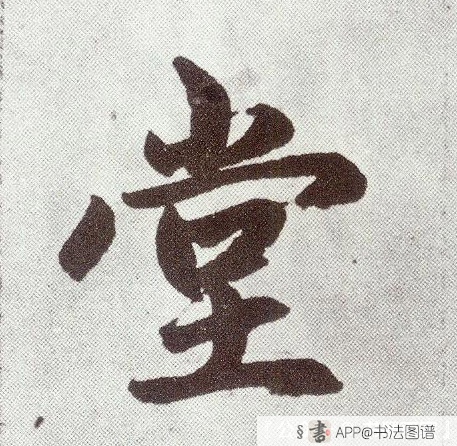 堂
§書 APP@书法图谱